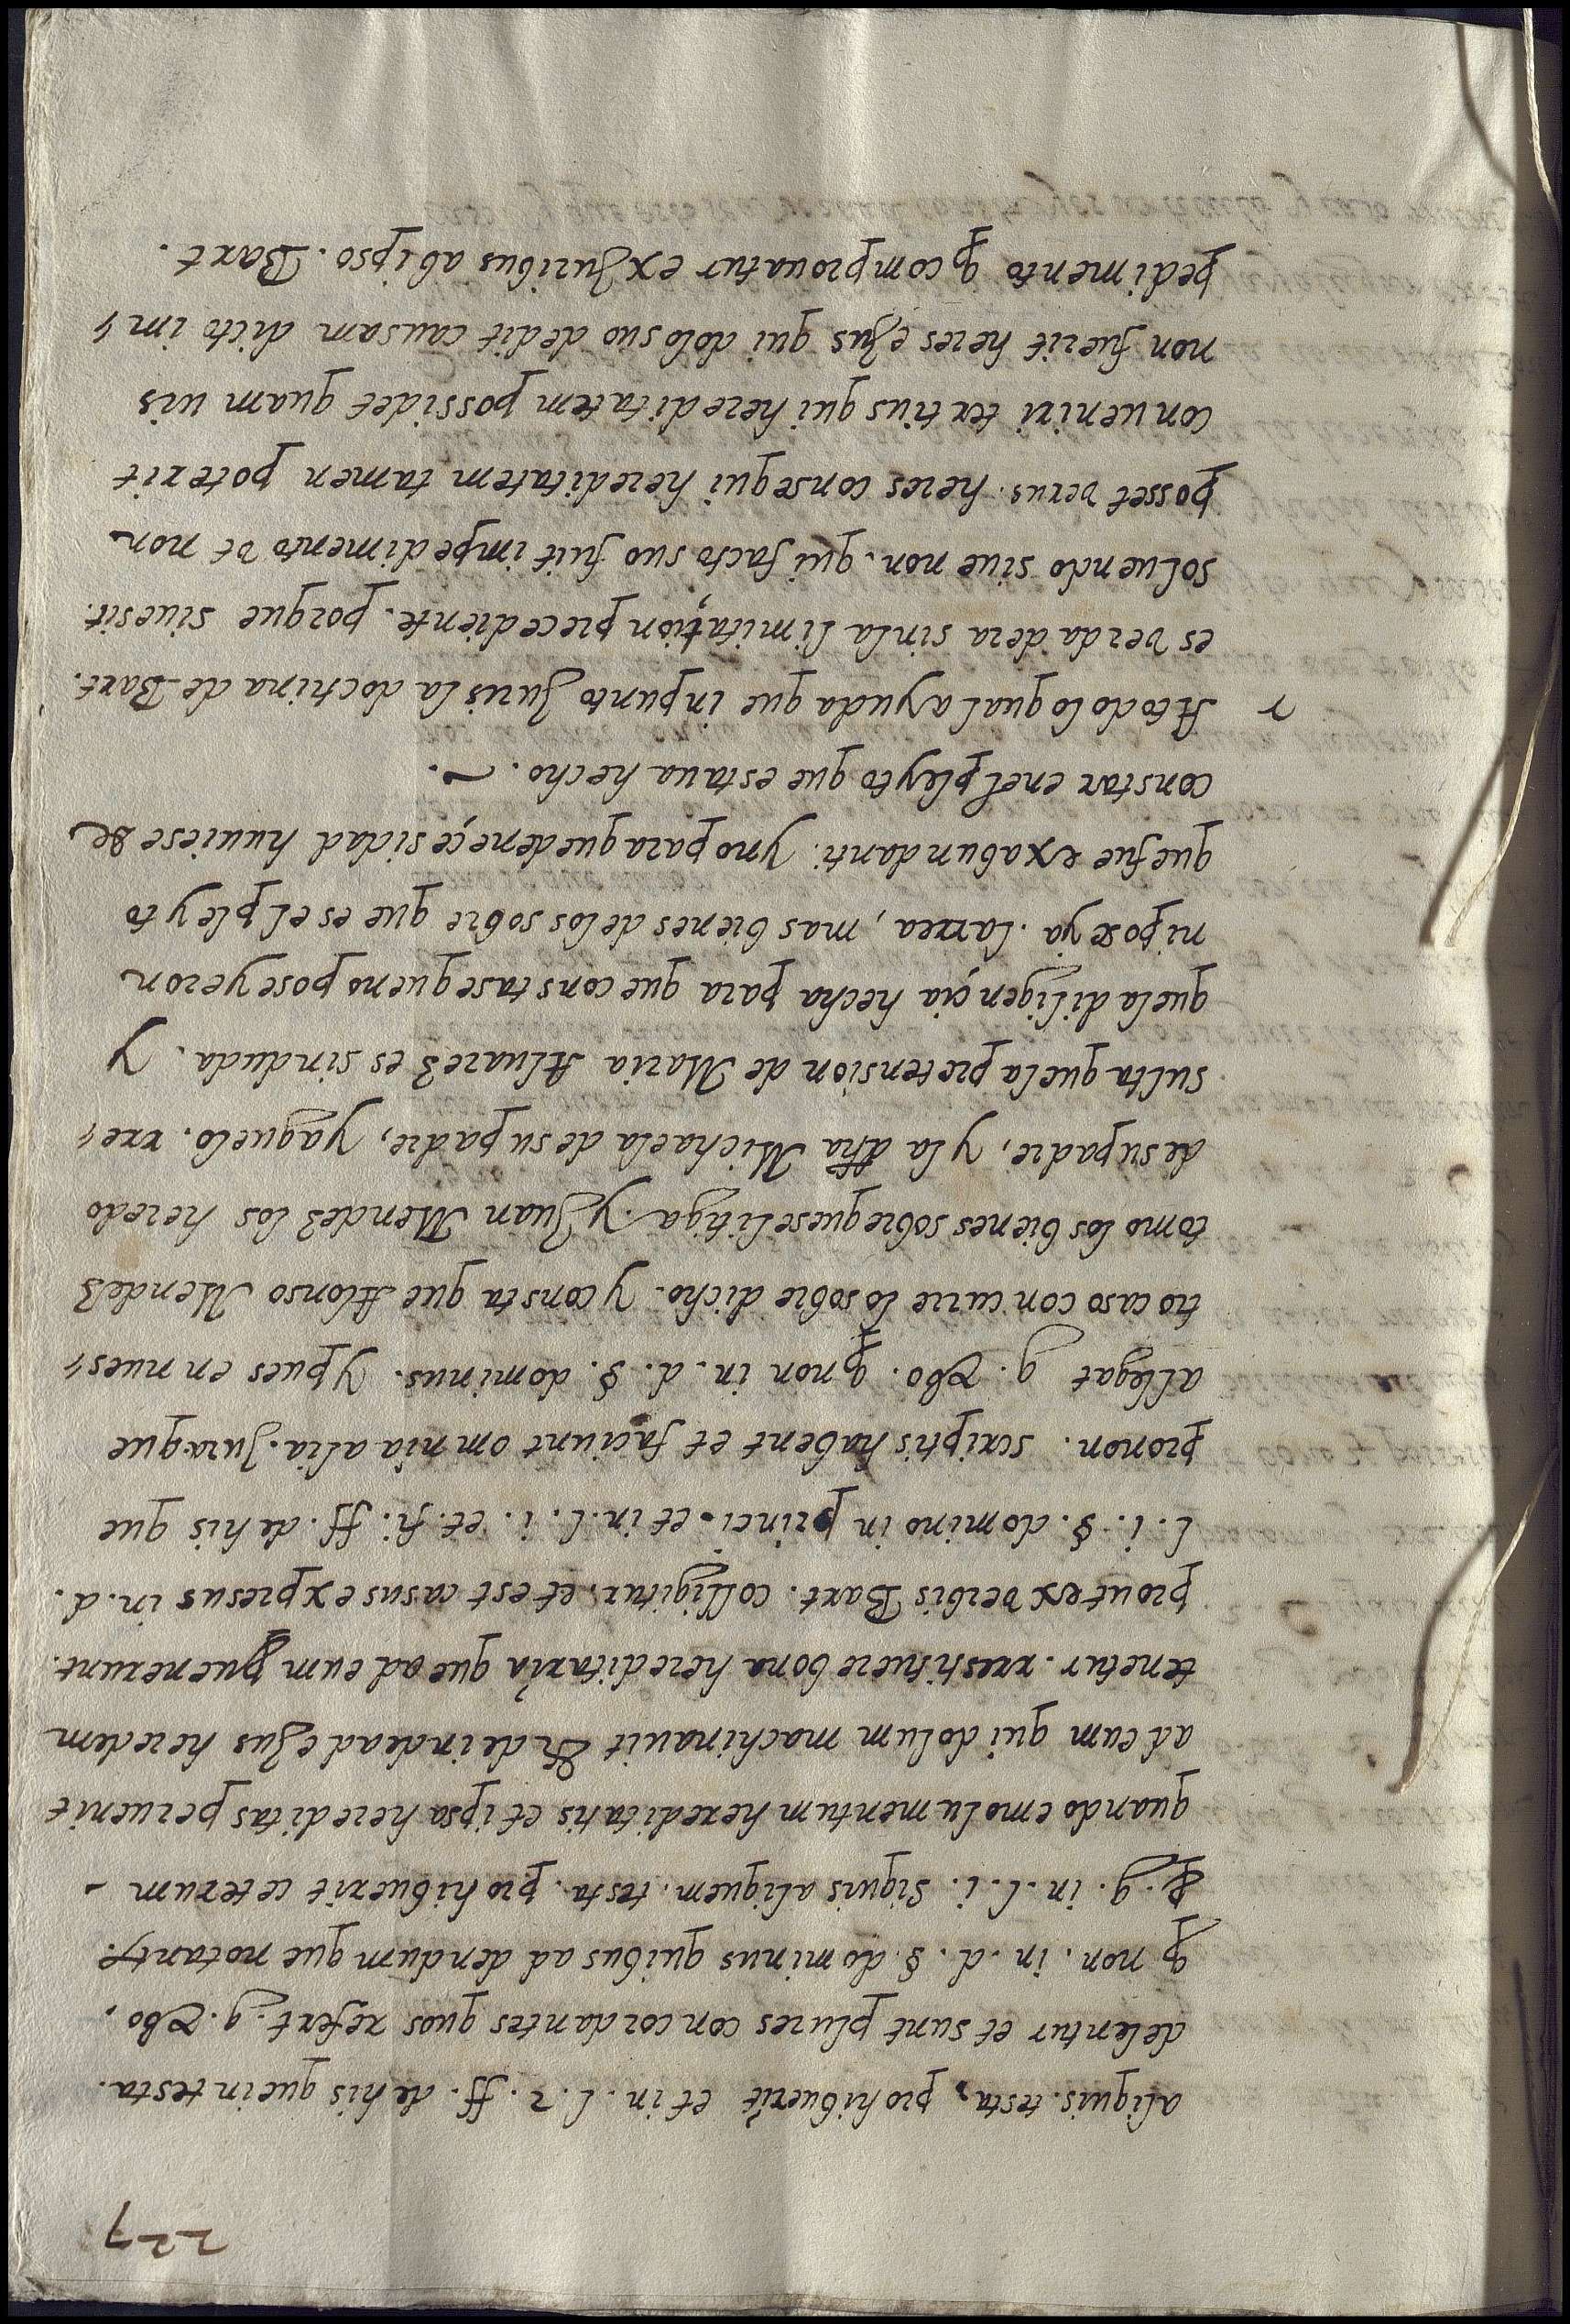 227
aliquis. testa. prohibuerit et in. l. 2. ff. de his que in testa.
delentur et sunt plures concordantes quos refert. g. &bo.
q non. in. d. §. dominus quibus addendum que notant
g. in. l. i. siquis aliquem. testa. prohibuerit ceterum -
quando emolumentum hereditatis et ipsa hereditas peruenit
ad eum qui dolum machinauit & deinde ad ejus heredem
tenetur. rrestituere bona hereditaria que ad eum puenerunt.
prout ex verbis Bart. colligitur, et est casus expresus in. d.
l. i. §. domino in princi. et in. l. i. et. fi. ff. de his que
pronon. scriptis habent et faciunt omnia alia. Jura que
allegat g. &bo. q non in. d. §. dominus. Y pues en nues,,
tro caso concurre lo sobre dicho. y consta que Alonso Mendez
tomo los bienes sobre que se litiga. y Juan Mendez los heredo
de su padre, y la dha Michaela de su padre, y aguelo. rre,,
sulta que la pretension de Maria Aluarez es sin duda. Y
que la diligençia hecha para que constase que no poseyeron
ni poseya. Larrea, mas bienes de los sobre que es el pleyto
que fue exabundanti. y no para que de neçesidad huuiese de
constar en el pleyto que estaua hecho. ~.
r A todo lo qual ayuda que in punto Juris la doctrina de Bart.
es verdadera sin la limitaçion precediente. porque siue sit.
soluendo siue non. qui facto suo fuit impedimento vt non
posset verus. heres consequi hereditatem tamen poterit
conueniri tertius qui hereditatem possidet quam uis
non fuerit heres ejus qui dolo suo dedit causam dicto im,,
pedimento q comprouatur ex Juribus ab ipso. Bart.